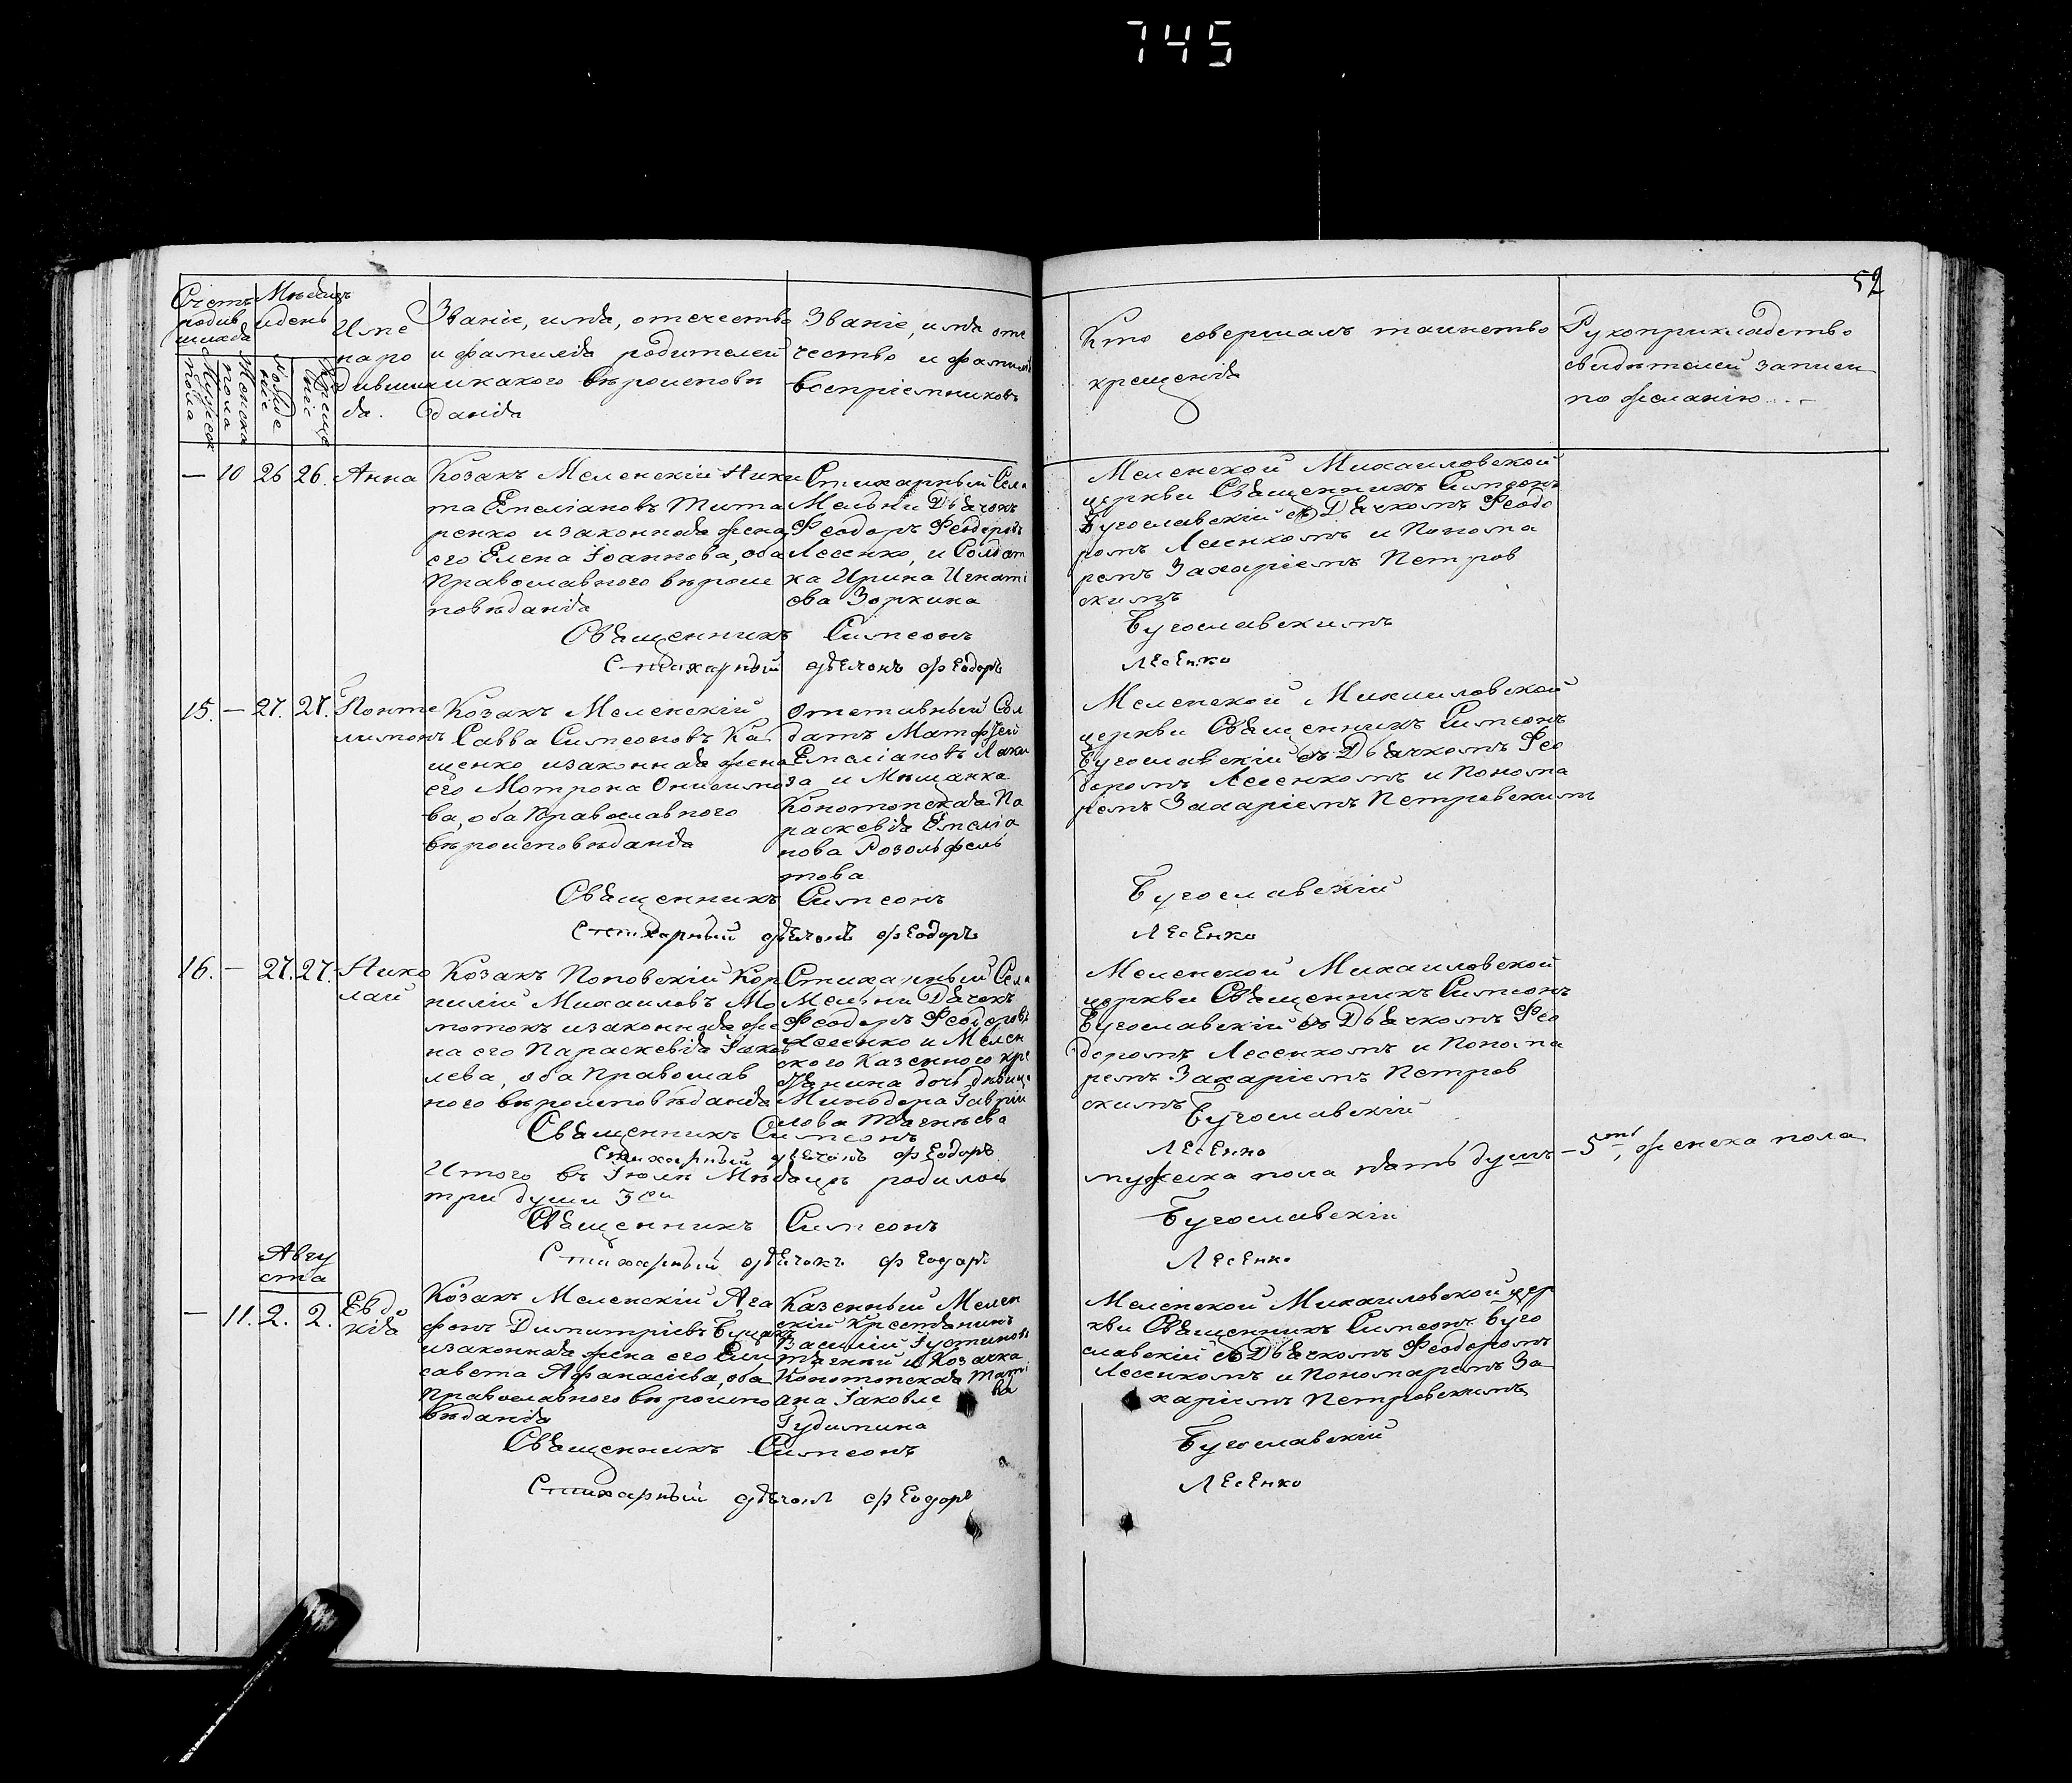 745
52
Счетъ родив шихся
Мужеска пола
Женска пола
Мѣсяцъ и день
Рожде ніе
Креще ніе
Име на ро дивши хся.
Званіе, имя, отечество
и фамилія родителей
и какого вѣроисповѣ
данія
Званіе, имя оте
чество и фамилія
воспріемниковъ
Кто совершалъ таинство
крещенія
Рукоприкладство
свидѣтелей записи
по желанію
— 10 26 26. Анна
Козакъ Меленскій Ники
та Емеліановъ Тита
ренко и законная жена
его Елена Іоаннова, оба
Православного вѣроис
повѣданія
Стихарный Села
Мельни Дьячокъ
Феодоръ Феодоровъ
Лесенко, и Солдат
ка Ирина Игнаті
ева Зоркина
Меленской Михаиловской
церкви Священникъ Симеонъ
Бугославскій съ Дьячкомъ Феодо
ромъ Лесенкомъ и Понома
ремъ Захаріемъ Петров
скимъ
Священникъ Симеонъ Бугославскимъ
Стихарный дьячокъ феодоръ Лесенко
15. — 27. 27. Понте
лимонъ
Козакъ Меленскій
Савва Симеоновъ Ка
щенко и законная жена
его Мотрона Онисимо
ва, оба Православного
вѣроисповѣданія
Отставный Сол
датъ Матфѣй
Емеліановъ
за и Мѣщанка
Конотопская Па
раскевія Емеліа
нова Розольфель
това
Меленской Михаиловской
церкви Священникъ Симеонъ
Бугославскій съ Дьячкомъ Фео
доромъ Лесенкомъ и Понома
ремъ Захаріемъ Петровскимъ
Священникъ Симеонъ Бугославскій
Стихарный дьячокъ феодоръ Лесенко
16. — 27. 27. Нико
лай
Козакъ Поповскій Кор
нилій Михаиловъ Мо
мотокъ и законная же
на его Параскевія Іаков
лева, оба Православ
ного вѣроисповѣданія
Стихарный Села
Мельни Дьячокъ
Феодоръ Феодоровъ
Лесенко и Мелен
ского Казенного кре
стьянина дочь дѣвица
Минодора Гаврии
лова
Меленской Михаиловской
церкви Священникъ Симеонъ
Бугославскій съ Дьячкомъ Фео
доромъ Лесенкомъ и Понома
ремъ Захаріемъ Петров
скимъ
Священникъ Симеонъ Бугославскій
Стихарный дьячокъ феодоръ Лесенко
Итого въ Іюлѣ Мѣсяцѣ родилось мужеска пола пять душъ — 5ть, женска пола
три души 3ри
Священникъ Симеонъ Бугославскій
Стихарный дьячокъ феодоръ Лесенко
Авгу
ста
— 11. 2. 2. Евдо
кія
Козакъ Меленскій Ага
фонъ Димитріевъ
и законная жена его Ели
савета Афанасіева, оба
Православного вѣроиспо
вѣданія
Казенный Мелен
скій Крестьянинъ
Василій Іустиновъ
и Козачка
Конотопская Таті
ана Іаковле ва
Гудимина
Меленской Михаиловской цер
кви Священникъ Симеонъ Буго
славскій съ Дьячкомъ Феодоромъ
Лесенкомъ и Пономаремъ За
харіемъ Петровскимъ
Священникъ Симеонъ Бугославскій
Стихарный дьячокъ феодоръ Лесенко